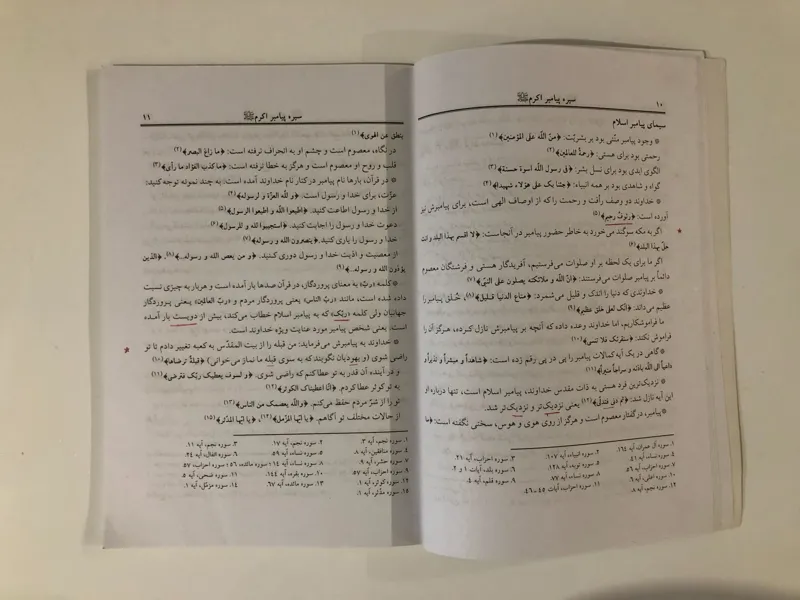 ۱۰
سیره پیامبر اکرم ﷺ
سیمای پیامبر اسلام
* وجود پیامبر منّتی بود بر بشریّت: ﴿منّ اللّه علی المؤمنین﴾(۱)
رحمتی بود برای هستی: ﴿رحمةً للعالمین﴾(۲)
الگوی ابدی بود برای نسل بشر: ﴿فی رسول اللّه اسوة حسنة﴾(۳)
گواه و شاهدی بود بر همه انبیاء: ﴿جئنا بک علی هؤلاء شهیدا﴾(۴)
* خداوند دو وصف رأفت و رحمت را که از اوصاف الهی است، برای پیامبرش نیز
آورده است: ﴿رئوفٌ رحیم﴾(۵)
اگر به مکه سوگند می‌خورد به خاطر حضور پیامبر در آنجاست: ﴿لا اقسم بهذا البلد و انت
حلّ بهذا البلد﴾(۶)
اگر ما برای یک لحظه بر او صلوات می‌فرستیم، آفریدگار هستی و فرشتگان معصوم
دائماً بر پیامبر صلوات می‌فرستند: ﴿انّ اللّه و ملائکته یصلون علی النبی﴾(۷)
* خداوندی که دنیا را اندک و قلیل می‌شمرد: ﴿متاع الدنیا قلیل﴾(۸)، خُلق پیامبر را
عظیم می‌داند. ﴿انّک لعلی خلق عظیم﴾(۹)
ما فراموشکاریم، اما خداوند وعده داده که آنچه بر پیامبرش نازل کرده، هرگز آن را
فراموش نکند: ﴿سنقرئک فلا تنسی﴾(۱۰)
* گاهی در یک آیه کمالات پیامبر را پی در پی رقم زده است: ﴿شاهداً و مبشراً و نذیراً و
داعیاً الی اللّه باذنه و سراجاً منیراً﴾(۱۱)
* نزدیک‌ترین فرد هستی به ذات مقدس خداوند، پیامبر اسلام است، تنها درباره او
این آیه نازل شد: ﴿ثم دنی فتدلّی﴾(۱۲) یعنی نزدیک‌تر و نزدیک‌تر شد.
* پیامبر، در گفتار معصوم است و هرگز از روی هوی و هوس، سخنی نگفته است: ﴿ما
۱. سوره آل عمران، آیه ۱۶۴. ۲. سوره انبیاء، آیه ۱۰۷. ۳. سوره احزاب، آیه ۲۱.
۴. سوره نساء، آیه ۴۱. ۵. سوره توبه، آیه ۱۲۸. ۶. سوره بلد، آیات ۱ و ۲.
۷. سوره احزاب، آیه ۵۶. ۸. سوره نساء، آیه ۷۷. ۹. سوره قلم، آیه ۴.
۱۰. سوره اعلی، آیه ۶. ۱۱. سوره احزاب، آیات ۴۵ - ۴۶.
۱۲. سوره نجم، آیه ۸.
سیره پیامبر اکرم ﷺ
۱۱
ینطق عن الهوی﴾(۱)
در نگاه، معصوم است و چشم او به انحراف نرفته است: ﴿ما زاغ البصر﴾(۲)
قلب و روح او معصوم است و هرگز به خطا نرفته است: ﴿ما کذب الفؤاد ما رأی﴾(۳)
* در قرآن، بارها نام پیامبر در کنار نام خداوند آمده است؛ به چند نمونه توجه کنید:
عزّت، برای خدا و رسول است. ﴿و للّه العزّة و لرسوله﴾(۴)
از خدا و رسول اطاعت کنید. ﴿اطیعوا اللّه و اطیعوا الرسول﴾(۵)
دعوت خدا و رسول را اجابت کنید. ﴿استجیبوا للّه و للرسول﴾(۶)
خدا و رسول را یاری کنید. ﴿ینصرون الله و رسوله﴾(۷)
از معصیت و اذیت خدا و رسول دوری کنید. ﴿و من یعص الله و رسوله...﴾(۸)، ﴿الذین
یؤذون الله و رسوله...﴾(۹)
* کلمه «ربّ» به معنای پروردگار، در قرآن صدها بار آمده است و هر بار به چیزی نسبت
داده شده است، مانند «ربّ الناس» یعنی پروردگار مردم و «ربّ العالمین» یعنی پروردگار
جهانیان ولی کلمه «ربّک» که به پیامبر اسلام خطاب می‌کند، بیش از دویست بار آمده
است. یعنی شخص پیامبر مورد عنایت ویژه خداوند است.
* خداوند به پیامبرش می‌فرماید: من قبله را از بیت المقدّس به کعبه تغییر دادم تا تو
راضی شوی (و یهودیان نگویند که به سوی قبله ما نماز می‌خوانی) ﴿قبلةً ترضاها﴾(۱۰)
و در آینده آن قدر به تو عطا کنم که راضی شوی. ﴿و لسوف یعطیک ربّک فترضی﴾(۱۱)
به تو کوثر عطا کردم. ﴿انّا اعطیناک الکوثر﴾(۱۲)
تو را از شرّ مردم حفظ می‌کنم. ﴿واللّه یعصمک من الناس﴾(۱۳)
از حالات مختلف تو آگاهم. ﴿یا ایّها المزّمل﴾(۱۴)، ﴿یا ایّها المدّثر﴾(۱۵)
۱. سوره نجم، آیه ۳. ۲. سوره نجم، آیه ۱۷. ۳. سوره نجم، آیه ۱۱.
۴. سوره منافقین، آیه ۸. ۵. سوره نساء، آیه ۵۹. ۶. سوره انفال، آیه ۲۴.
۷. سوره حشر، آیه ۹. ۸. سوره نساء، آیه ۱۴؛ سوره مائده، ۵۶؛ سوره احزاب، ۵۷
۹. سوره احزاب، آیه ۵۷. ۱۰. سوره بقره، آیه ۱۴۴. ۱۱. سوره ضحی، آیه ۵.
۱۲. سوره کوثر، آیه ۱. ۱۳. سوره مائده، آیه ۶۷. ۱۴. سوره مزمّل، آیه ۱.
۱۵. سوره مدّثر، آیه ۱.